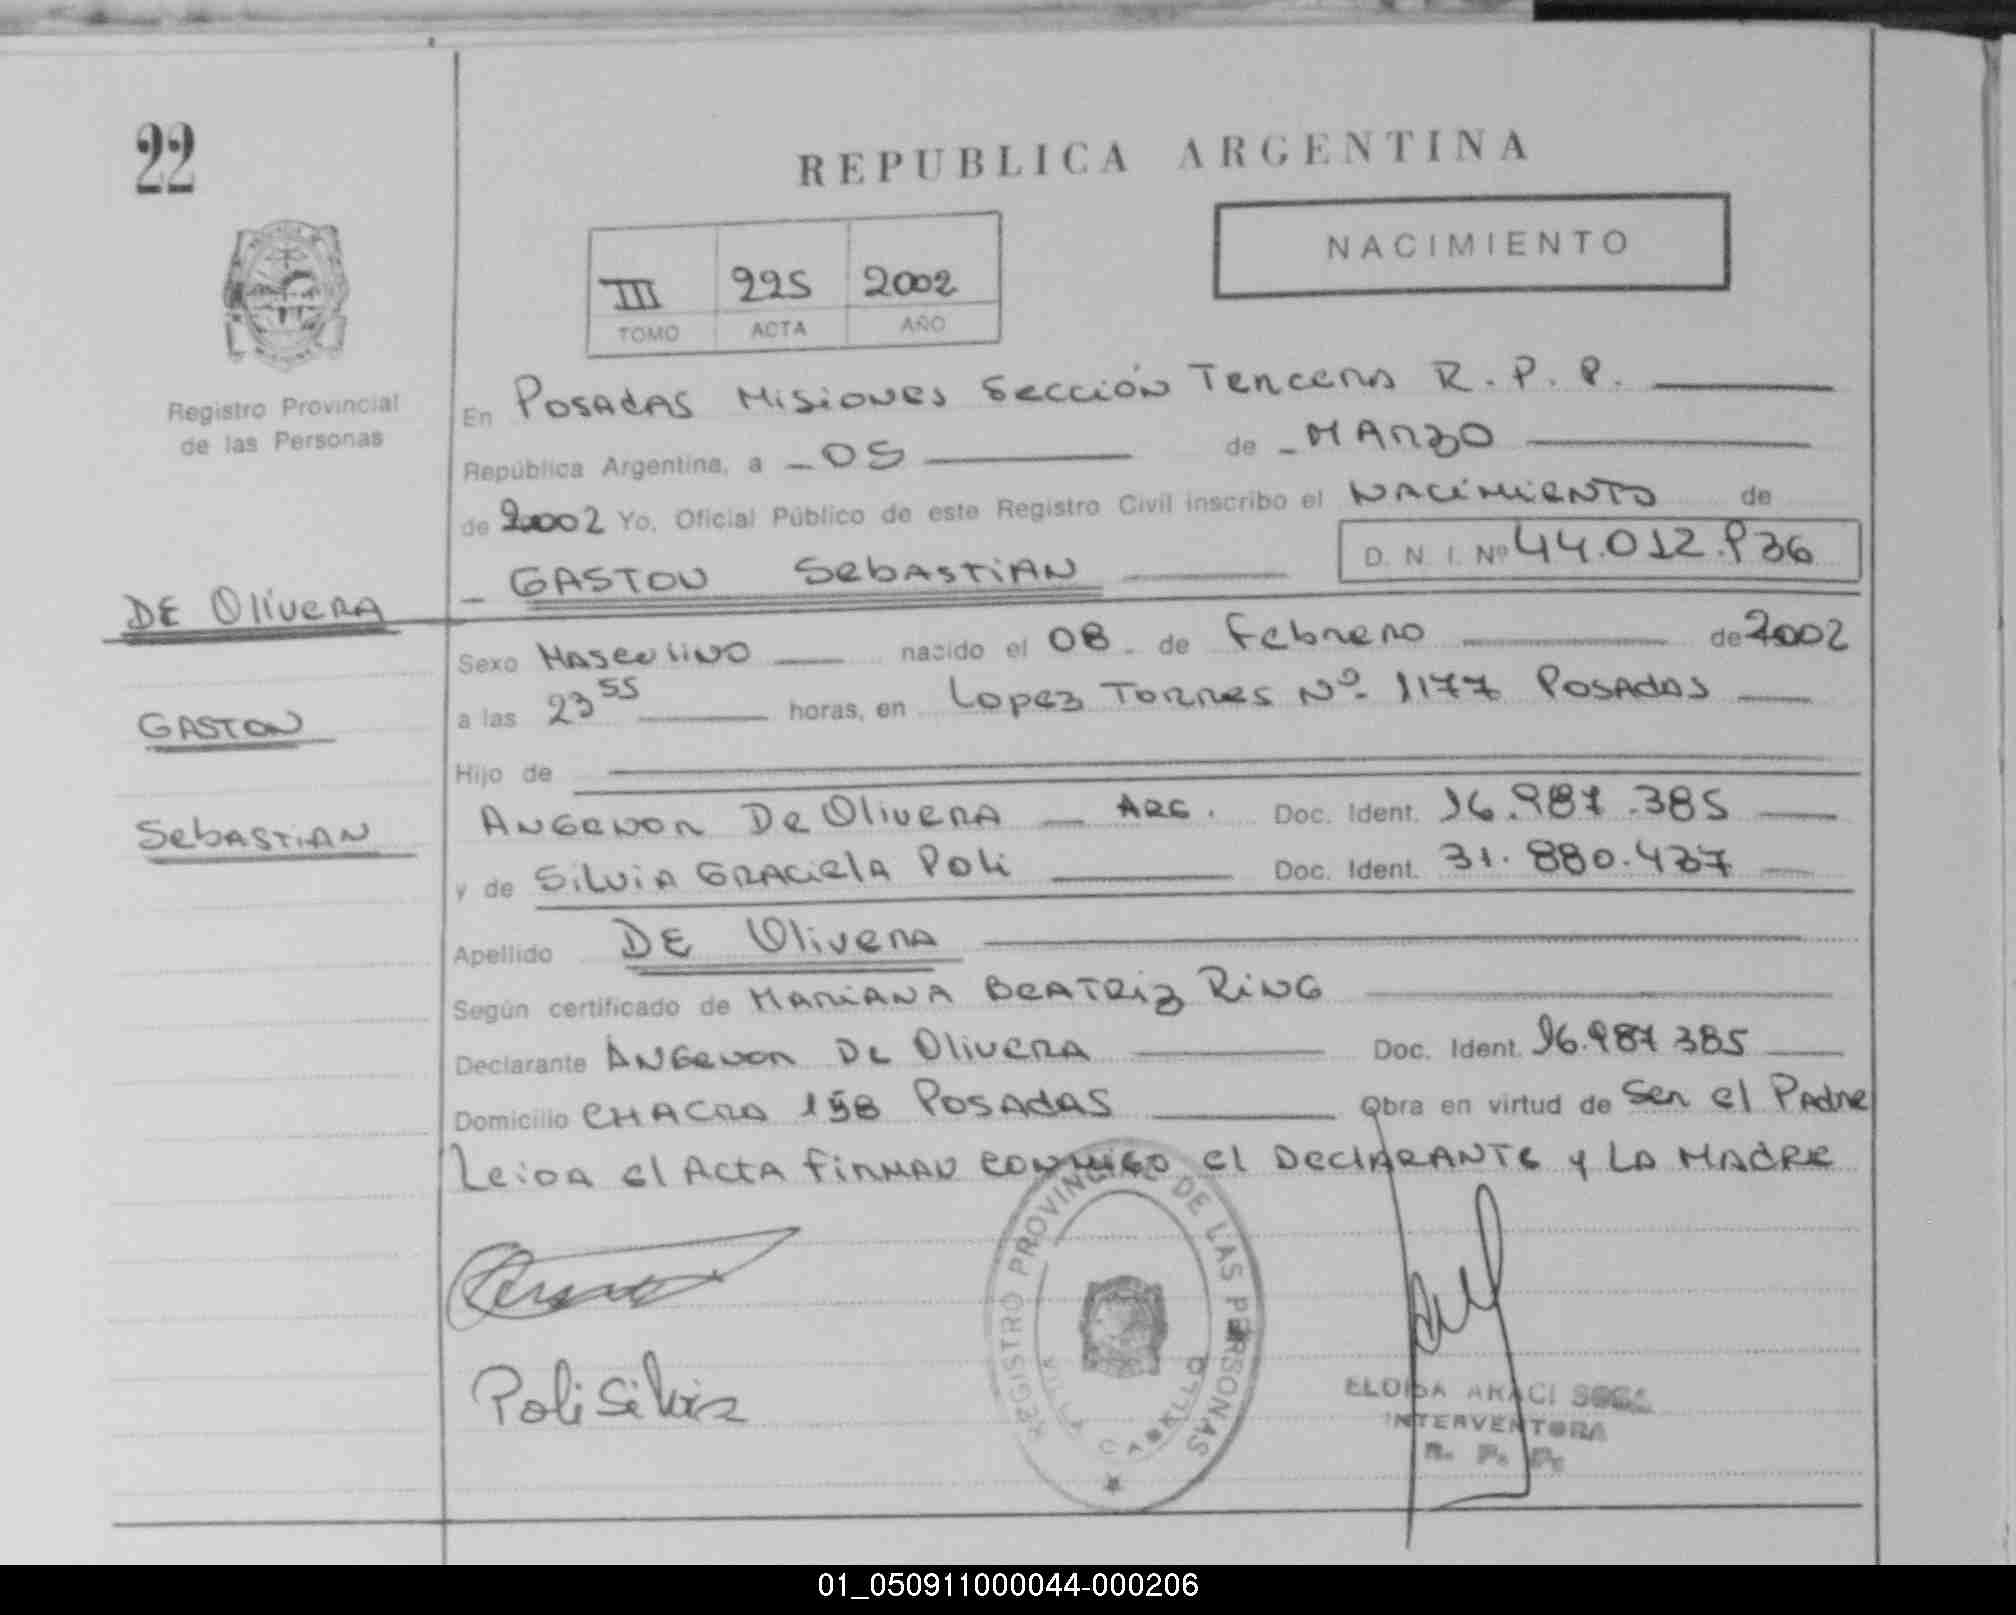 22
REPUBLICA ARGENTINA
NACIMIENTO
III 225 2002
TOMO ACTA AÑO
Registro Provincial
de las Personas
En POSADAS MISIONES SECCIÓN TERCERA R.P.P.
República Argentina, a 05 de MARZO
de 2002 Yo, Oficial Público de este Registro Civil inscribo el NACIMIENTO de
GASTON SEBASTIAN D. N. I. Nº 44.012.936
DE OLIVERA
GASTON
SEBASTIAN
Sexo MASCULINO nacido el 08 de FEBRERO de 2002
a las 23 55 horas, en LOPEZ TORRES Nº 1177 POSADAS
Hijo de
ANGENOR DE OLIVERA ARG. Doc. Ident. 16.987.385
y de SILVIA GRACIELA POLI Doc. Ident. 31.880.437
Apellido DE OLIVERA
Según certificado de MARIANA BEATRIZ RING
Declarante ANGENOR DE OLIVERA Doc. Ident. 16.987 385
Domicilio CHACRA 158 POSADAS Obra en virtud de SER EL PADRE
LEIDA EL ACTA FIRMAN CONMIGO EL DECLARANTE Y LA MADRE
REGISTRO PROVINCIAL DE LAS PERSONAS
VILLA CABELLO
Poli Silvia
ELOISA ARACI SOSA
INTERVENTORA
R. P. P.
01_050911000044-000206